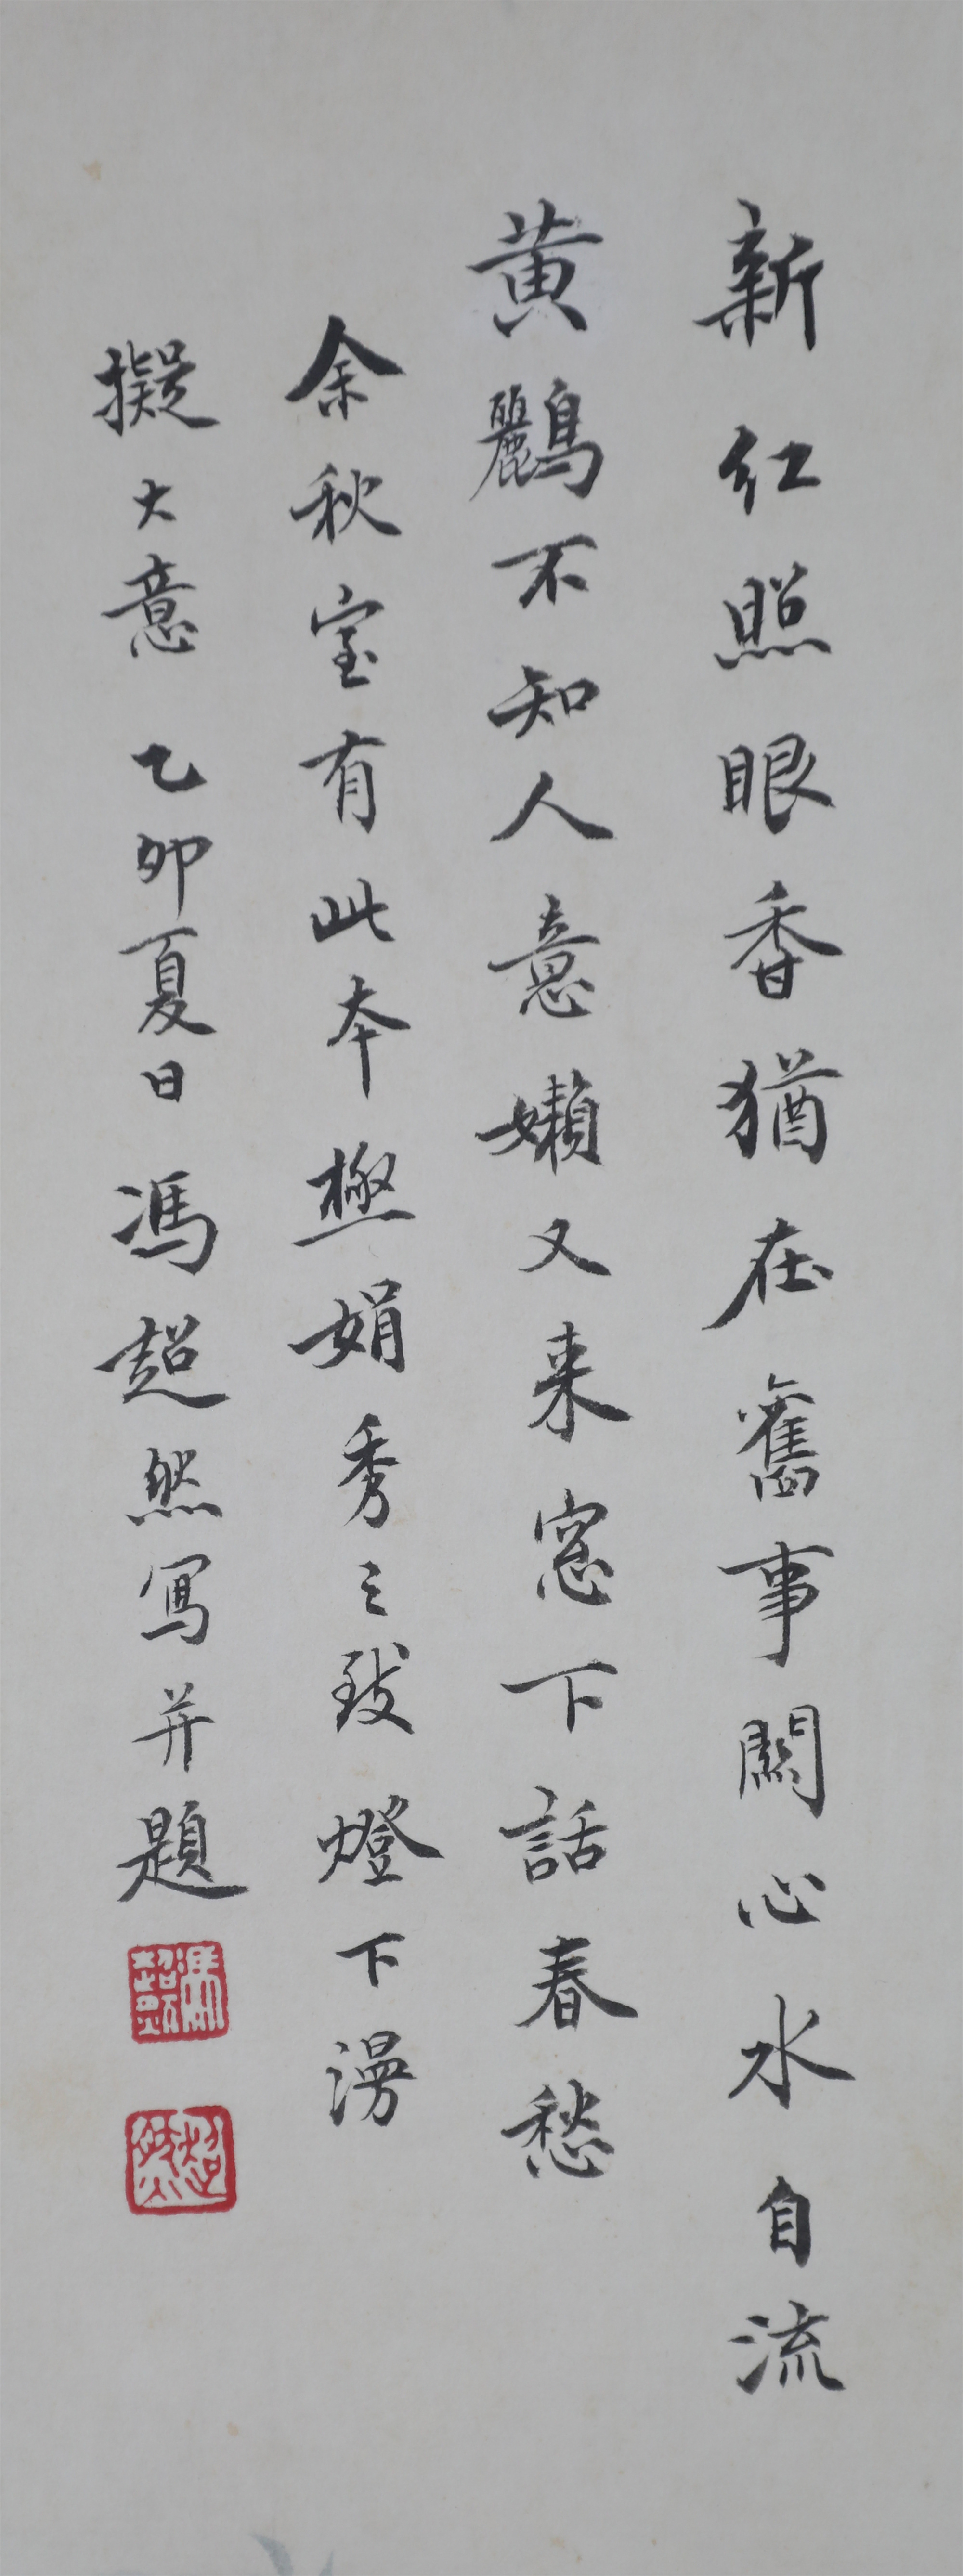 新紅照眼香猶在舊事關心水自流
黃鸝不知人意嬾又来窓下話春愁
余秋室有此本極娟秀之致燈下漫
擬大意乙卯夏日馮超然寫并題
馮超然
超然